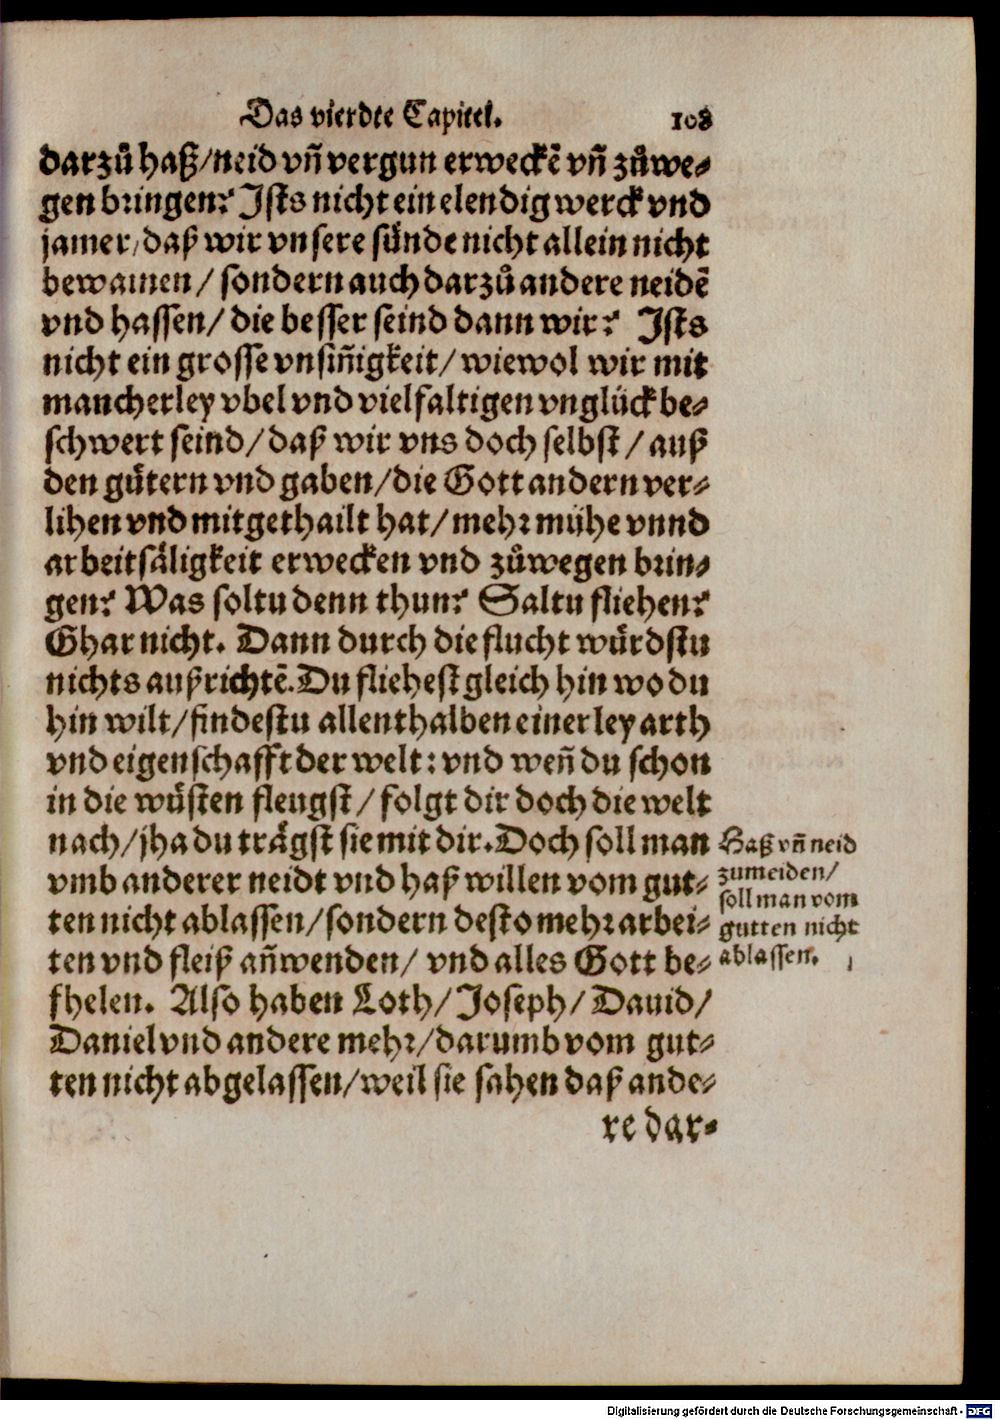 Das vierdte Capitel. 108
darzů haß/neid vñ vergun erweckẽ vñ zůwe⸗
gen bringen? Ists nicht ein elendig werck vnd
jamer/daß wir vnsere sünde nicht allein nicht
bewainen/ sondern auch darzů andere neidẽ
vnd hassen/ die besser seind dann wir? Ists
nicht ein grosse vnsiñigkeit/ wiewol wir mit
mancherley vbel vnd vielfaltigen vnglück be⸗
schwert seind/ daß wir vns doch selbst/ auß
den gütern vnd gaben/die Gott andern ver⸗
lihen vnd mitgethailt hat/ mehr mühe vnnd
arbeitsäligkeit erwecken vnd zůwegen brin⸗
gen? Was soltu denn thun? Saltu fliehen?
Ghar nicht. Dann durch die flucht würdstu
nichts außrichtẽ. Du fliehest gleich hin wo du
hin wilt/ findestu allenthalben einerley arth
vnd eigenschafft der welt: vnd weñ du schon
in die wüsten fleugst/ folgt dir doch die welt
nach/ jha du trägst sie mit dir. Doch soll man
vmb anderer neidt vnd haß willen vom gut⸗
ten nicht ablassen/ sondern desto mehr arbei⸗
ten vnd fleiß añwenden/ vnd alles Gott be⸗
fhelen. Also haben Loth/ Joseph/ Dauid/
Daniel vnd andere mehr/ darumb vom gut⸗
ten nicht abgelassen/ weil sie sahen daß ande⸗
re dar⸗
Haß vñ neid
zumeiden/
soll man vom
gutten nicht
ablassen.
Digitalisierung gefördert durch die Deutsche Forschungsgemeinschaft - DFG